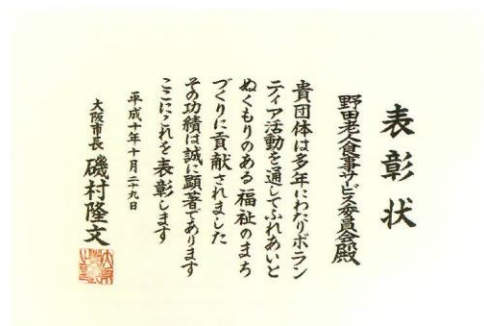 表彰状
野田老人食事サービス委員会殿
貴団体は多年にわたりボラン
ティア活動を通してふれあいと
ぬくもりのある福祉のまち
づくりに貢献されました
その功績は誠に顕著であります
ここにこれを表彰します
平成十年十月二十九日
大阪市長 磯村隆文